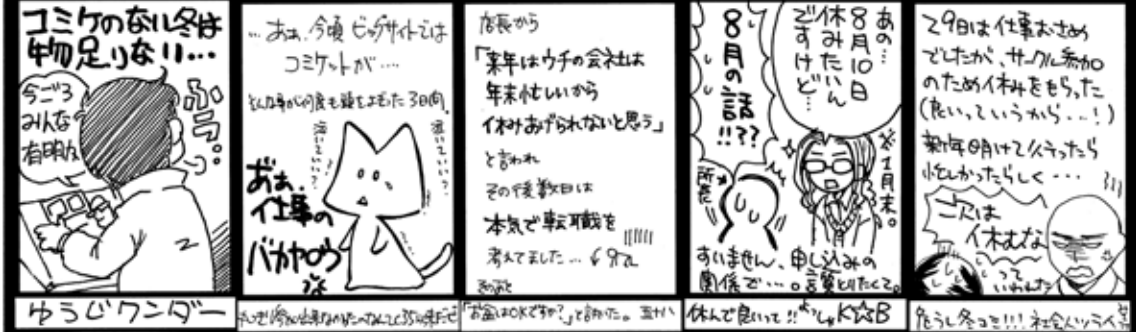 コミケのない冬は
物足りない…
今ごろ
みんな
有明は
ふぅ…
ゆうじワンダー
…あぁ、今頃ビッグサイトでは
コミケットが…
そんな事が何度も頭をよぎった3日間。
泣いていい?
泣いていい?
あぁ、
仕事の
バカヤロウ
店長から
「来年はウチの会社は
年末忙しいから
休みあげられないと思う」
と言われ
その後数日は
本気で転職を
考えてました…
そのあと
「お盆はOKですか?」と言われた。
あの…
8月10日
休みたいん
ですけど…
8月の話
!!??
※1月末。
所長
すいません、申し込みの
関係で…。言質とりたくて。
休んで良いって!!
K☆B
29日は仕事おさめ
でしたが、サークル参加
のため休みをもらった
(良いっていうから…!)
新年明けて行ったら
忙しかったらしく…
次は
休むな
って
いわれた
危うし冬コミ!!!社会人ツライ